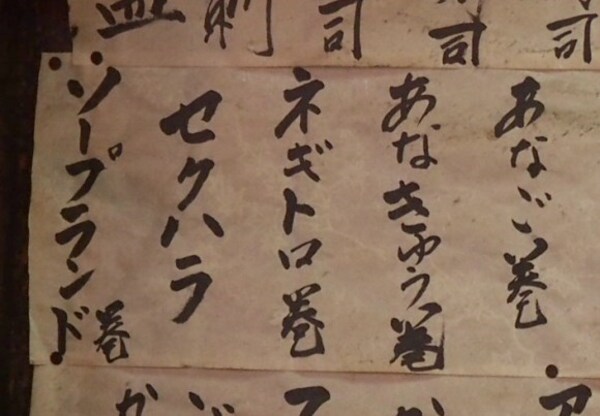 司
司
司
刺
皿
あなご巻
あなきゅう巻
ネギトロ巻
セクハラ
ソープランド巻